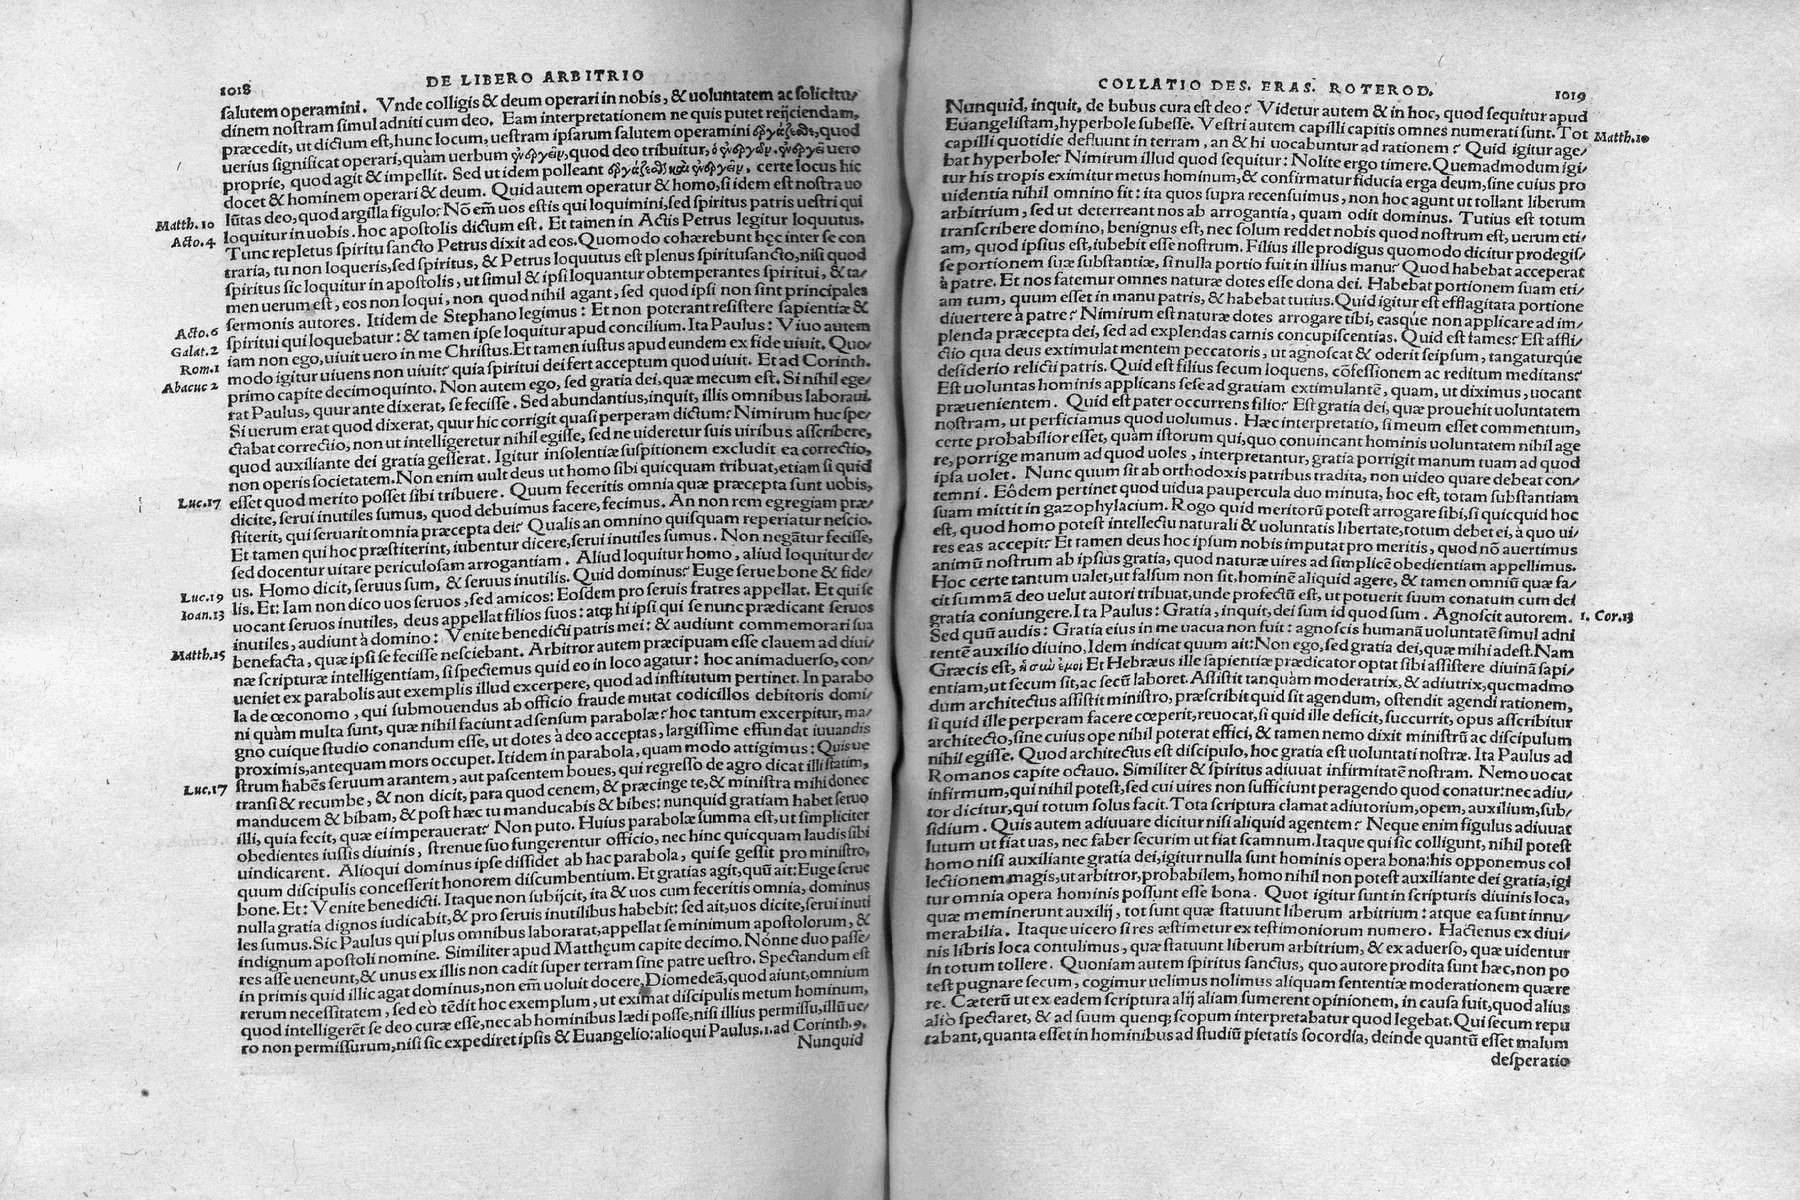 1018
DE LIBERO ARBITRIO
salutem operamini. Vnde colligis & deum operari in nobis, & uoluntatem ac solicitu/
dinem nostram simul adniti cum deo. Eam interpretationem ne quis putet reijciendam,
præcedit, ut dictum est, hunc locum, uestram ipsarum salutem operamini ἐργάζεσθε, quod
uerius significat operari, quàm uerbum ἐνεργεῖν, quod deo tribuitur, ὁ ἐνεργῶν. ἐνεργεῖ uero
proprie, quod agit & impellit. Sed ut idem polleant ἐργάζεσθαι καὶ ἐνεργεῖν, certe locus hic
docet & hominem operari & deum. Quid autem operatur & homo, si idem est nostra uo
lũtas deo, quod argilla figulo? Nõ em̃ uos estis qui loquimini, sed spiritus patris uestri qui
Matth. 10
loquitur in uobis. hoc apostolis dictum est. Et tamen in Actis Petrus legitur loquutus.
Acto. 4
Tunc repletus spiritu sancto Petrus dixit ad eos. Quomodo cohærebunt hęc inter se con
traria, tu non loqueris, sed spiritus, & Petrus loquutus est plenus spiritusancto, nisi quod
spiritus sic loquitur in apostolis, ut simul & ipsi loquantur obtemperantes spiritui, & ta/
men uerum est, eos non loqui, non quod nihil agant, sed quod ipsi non sint principales
sermonis autores. Itidem de Stephano legimus: Et non poterant resistere sapientiæ &
Acto. 6
spiritui qui loquebatur: & tamen ipse loquitur apud concilium. Ita Paulus: Viuo autem
Galat. 2
iam non ego, uiuit uero in me Christus. Et tamen iustus apud eundem ex fide uiuit. Quo/
Rom. 1
modo igitur uiuens non uiuit? quia spiritui dei fert acceptum quod uiuit. Et ad Corinth.
Abacuc 2
primo capite decimoquinto. Non autem ego, sed gratia dei, quæ mecum est. Si nihil ege/
rat Paulus, quur ante dixerat, se fecisse. Sed abundantius, inquit, illis omnibus laboraui.
Si uerum erat quod dixerat, quur hic corrigit quasi perperam dictum? Nimirum huc spe/
ctabat correctio, non ut intelligeretur nihil egisse, sed ne uideretur suis uiribus asscribere,
quod auxiliante dei gratia gesserat. Igitur insolentiæ suspitionem excludit ea correctio,
non operis societatem. Non enim uult deus ut homo sibi quicquam tribuat, etiam si quid
esset quod merito posset sibi tribuere. Quum feceritis omnia quæ præcepta sunt uobis,
Luc. 17
dicite, serui inutiles sumus, quod debuimus facere, fecimus. An non rem egregiam præ/
stiterit, qui seruarit omnia præcepta dei? Qualis an omnino quisquam reperiatur nescio.
Et tamen qui hoc præstiterint, iubentur dicere, serui inutiles sumus. Non negãtur fecisse,
sed docentur uitare periculosam arrogantiam. Aliud loquitur homo, aliud loquitur de/
us. Homo dicit, seruus sum, & seruus inutilis. Quid dominus? Euge serue bone & fide/
Luc. 19
lis. Et: Iam non dico uos seruos, sed amicos: Eosdem pro seruis fratres appellat. Et qui se
Ioan. 13
uocant seruos inutiles, deus appellat filios suos: atq; hi ipsi qui se nunc prædicant seruos
inutiles, audiunt à domino: Venite benedicti patris mei: & audiunt commemorari sua
Matth. 15
benefacta, quæ ipsi se fecisse nesciebant. Arbitror autem præcipuam esse clauem ad diui/
næ scripturæ intelligentiam, si spectemus quid eo in loco agatur: hoc animaduerso, con/
ueniet ex parabolis aut exemplis illud excerpere, quod ad institutum pertinet. In parabo
la de œconomo, qui submouendus ab officio fraude mutat codicillos debitoris domi/
ni quàm multa sunt, quæ nihil faciunt ad sensum parabolæ? hoc tantum excerpitur, ma/
gno cuique studio conandum esse, ut dotes à deo acceptas, largissime effundat iuuandis
proximis, antequam mors occupet. Itidem in parabola, quam modo attigimus: Quis ue
strum habẽs seruum arantem, aut pascentem boues, qui regresso de agro dicat illi statim,
Luc. 17
transi & recumbe, & non dicit, para quod cenem, & præcinge te, & ministra mihi donec
manducem & bibam, & post hæc tu manducabis & bibes: nunquid gratiam habet seruo
illi, quia fecit, quæ ei imperauerat? Non puto. Huius parabolæ summa est, ut simpliciter
obedientes iussis diuinis, strenue suo fungerentur officio, nec hinc quicquam laudis sibi
uindicarent. Alioqui dominus ipse dissidet ab hac parabola, qui se gessit pro ministro,
quum discipulis concesserit honorem discumbentium. Et gratias agit, quũ ait: Euge serue
bone. Et: Venite benedicti. Itaque non subijcit, ita & uos cum feceritis omnia, dominus
nulla gratia dignos iudicabit, & pro seruis inutilibus habebit: sed ait, uos dicite, serui inuti
les sumus. Sic Paulus qui plus omnibus laborarat, appellat se minimum apostolorum, &
indignum apostoli nomine. Similiter apud Matthęum capite decimo. Nónne duo passe/
res asse ueneunt, & unus ex illis non cadit super terram sine patre uestro. Spectandum est
in primis quid illic agat dominus, non em̃ uoluit docere, Diomedeã, quod aiunt, omnium
rerum necessitatem, sed eò tẽdit hoc exemplum, ut eximat discipulis metum hominum,
quod intelligerẽt se deo curæ esse, nec ab hominibus lædi posse, nisi illius permissu, illũ ue/
ro non permissurum, nisi sic expediret ipsis & Euangelio: alioqui Paulus. 1. ad Corinth. 9.
Nunquid
COLLATIO DES. ERAS. ROTEROD.
1019
Nunquid, inquit, de bubus cura est deo? Videtur autem & in hoc, quod sequitur apud
Euangelistam, hyperbole subesse. Vestri autem capilli capitis omnes numerati sunt. Tot
Matth. 10
capilli quotidie defluunt in terram, an & hi uocabuntur ad rationem? Quid igitur age/
bat hyperbole? Nimirum illud quod sequitur: Nolite ergo timere. Quemadmodum igi/
tur his tropis eximitur metus hominum, & confirmatur fiducia erga deum, sine cuius pro
uidentia nihil omnino fit: ita quos supra recensuimus, non hoc agunt ut tollant liberum
arbitrium, sed ut deterreant nos ab arrogantia, quam odit dominus. Tutius est totum
transcribere domino, benignus est, nec solum reddet nobis quod nostrum est, uerum eti/
am, quod ipsius est, iubebit esse nostrum. Filius ille prodigus quomodo dicitur prodegis/
se portionem suæ substantiæ, si nulla portio fuit in illius manu? Quod habebat acceperat
à patre. Et nos fatemur omnes naturæ dotes esse dona dei. Habebat portionem suam eti/
am tum, quum esset in manu patris, & habebat tutius. Quid igitur est efflagitata portione
diuertere à patre? Nimirum est naturæ dotes arrogare tibi, easque non applicare ad im/
plenda præcepta dei, sed ad explendas carnis concupiscentias. Quid est fames? Est affli/
ctio qua deus extimulat mentem peccatoris, ut agnoscat & oderit seipsum, tangaturque
desiderio relicti patris. Quid est filius secum loquens, cõfessionem ac reditum meditans?
Est uoluntas hominis applicans sese ad gratiam extimulantẽ, quam, ut diximus, uocant
præuenientem. Quid est pater occurrens filio? Est gratia dei, quæ prouehit uoluntatem
nostram, ut perficiamus quod uolumus. Hæc interpretatio, si meum esset commentum,
certe probabilior esset, quàm istorum qui, quo conuincant hominis uoluntatem nihil age
re, porrige manum ad quod uoles, interpretantur, gratia porrigit manum tuam ad quod
ipsa uolet. Nunc quum sit ab orthodoxis patribus tradita, non uideo quare debeat con/
temni. Eôdem pertinet quod uidua paupercula duo minuta, hoc est, totam substantiam
suam mittit in gazophylacium. Rogo quid meritorũ potest arrogare sibi, si quicquid hoc
est, quod homo potest intellectu naturali & uoluntatis libertate, totum debet ei, à quo ui/
res eas accepit? Et tamen deus hoc ipsum nobis imputat pro meritis, quod nõ auertimus
animũ nostrum ab ipsius gratia, quod naturæ uires ad simplicẽ obedientiam appellimus.
Hoc certe tantum ualet, ut falsum non sit, hominẽ aliquid agere, & tamen omniũ quæ fa/
cit summã deo uelut autori tribuat, unde profectũ est, ut potuerit suum conatum cum dei
gratia coniungere. Ita Paulus: Gratia, inquit, dei sum id quod sum. Agnoscit autorem.
1. Cor. 13
Sed quũ audis: Gratia eius in me uacua non fuit: agnoscis humanã uoluntatẽ simul adni
tentẽ auxilio diuino. Idem indicat quum ait: Non ego, sed gratia dei, quæ mihi adest. Nam
Græcis est, ἡ σὺν ἐμοί Et Hebræus ille sapientiæ prædicator optat sibi assistere diuinã sapi/
entiam, ut secum sit, ac secũ laboret. Assistit tanquàm moderatrix, & adiutrix, quemadmo
dum architectus assistit ministro, præscribit quid sit agendum, ostendit agendi rationem,
si quid ille perperam facere cœperit, reuocat, si quid ille deficit, succurrit, opus asscribitur
architecto, sine cuius ope nihil poterat effici, & tamen nemo dixit ministrũ ac discipulum
nihil egisse. Quod architectus est discipulo, hoc gratia est uoluntati nostræ. Ita Paulus ad
Romanos capite octauo. Similiter & spiritus adiuuat infirmitatẽ nostram. Nemo uocat
infirmum, qui nihil potest, sed cui uires non sufficiunt peragendo quod conatur: nec adiu/
tor dicitur, qui totum solus facit. Tota scriptura clamat adiutorium, opem, auxilium, sub/
sidium. Quis autem adiuuare dicitur nisi aliquid agentem? Neque enim figulus adiuuat
lutum ut fiat uas, nec faber securim ut fiat scamnum. Itaque qui sic colligunt, nihil potest
homo nisi auxiliante gratia dei, igitur nulla sunt hominis opera bona: his opponemus col
lectionem magis, ut arbitror, probabilem, homo nihil non potest auxiliante dei gratia, igi
tur omnia opera hominis possunt esse bona. Quot igitur sunt in scripturis diuinis loca,
quæ meminerunt auxilij, tot sunt quæ statuunt liberum arbitrium: atque ea sunt innu/
merabilia. Itaque uicero si res æstimetur ex testimoniorum numero. Hactenus ex diui/
nis libris loca contulimus, quæ statuunt liberum arbitrium, & ex aduerso, quæ uidentur
in totum tollere. Quoniam autem spiritus sanctus, quo autore prodita sunt hæc, non po
test pugnare secum, cogimur uelimus nolimus aliquam sententiæ moderationem quære
re. Cæterũ ut ex eadem scriptura alij aliam sumerent opinionem, in causa fuit, quod alius
aliò spectaret, & ad suum quenq; scopum interpretabatur quod legebat. Qui secum repu
tabant, quanta esset in hominibus ad studiũ pietatis socordia, deinde quantũ esset malum
desperatio